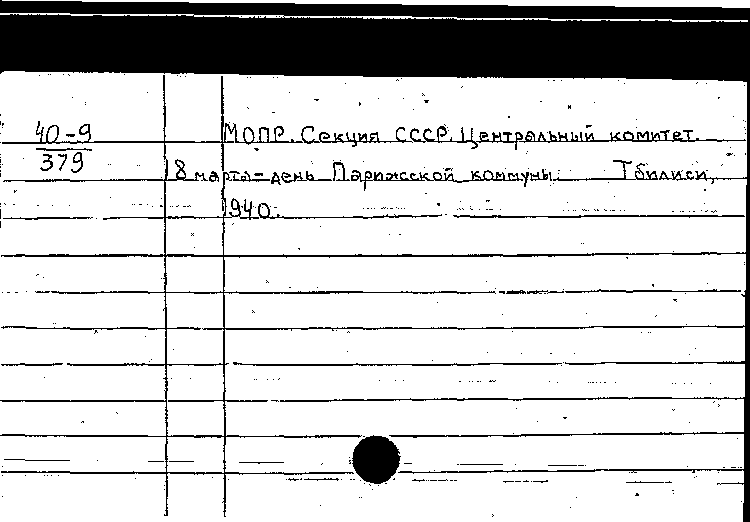 40-9
379
МОПР. Секция СССР. Центральный комитет.
18 марта-день Парижсской коммуны. Тбилиси,
1940.